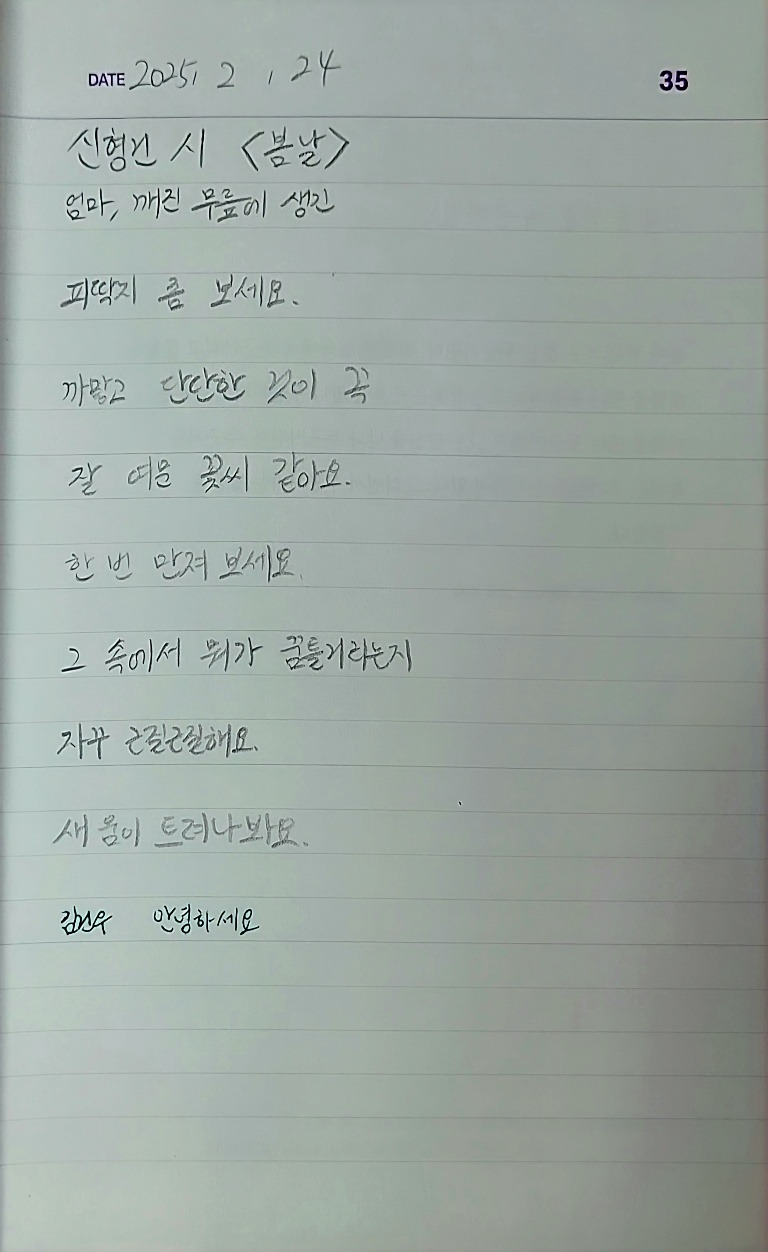 DATE 2025. 2 . 24
35
신형건 시 <봄날>
엄마, 깨진 무릎에 생긴
피딱지 좀 보세요.
까맣고 단단한 것이 꼭
잘 여문 꽃씨 같아요.
한 번 만져 보세요.
그 속에서 뭐가 꿈틀거리는지
자꾸 근질근질해요.
새 움이 트려나봐요.
안녕하세요